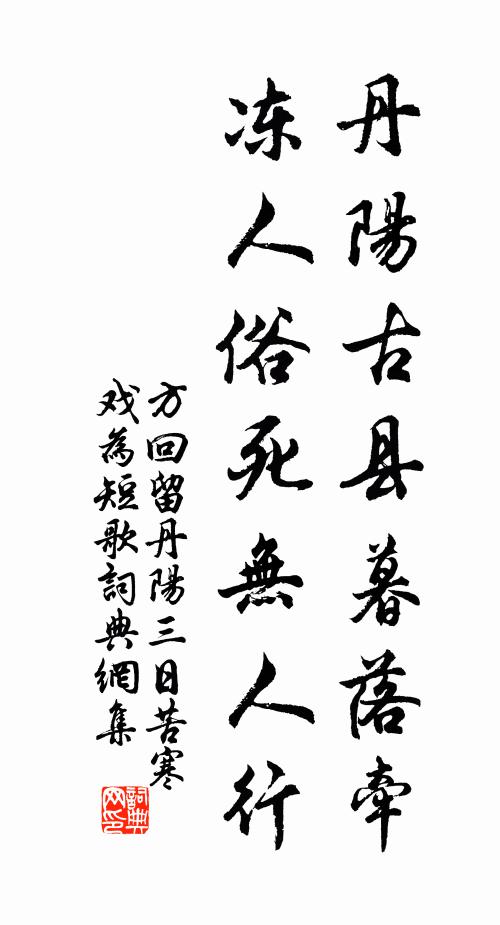 丹陽古县暮落牽
冻人俗死無人行
方回留丹陽三日苦寒
戏為短歌詞典網集
詞典網印